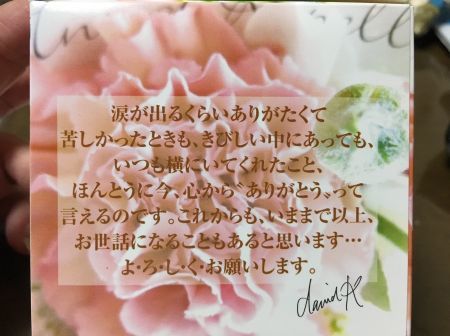 涙が出るくらいありがたくて
苦しかったときも、きびしい中にあっても、
いつも横にいてくれたこと、
ほんとうに今、心から〝ありがとう〟って
言えるのです。これからも、いままで以上、
お世話になることもあると思います…
よ・ろ・し・く・お願いします。
david A